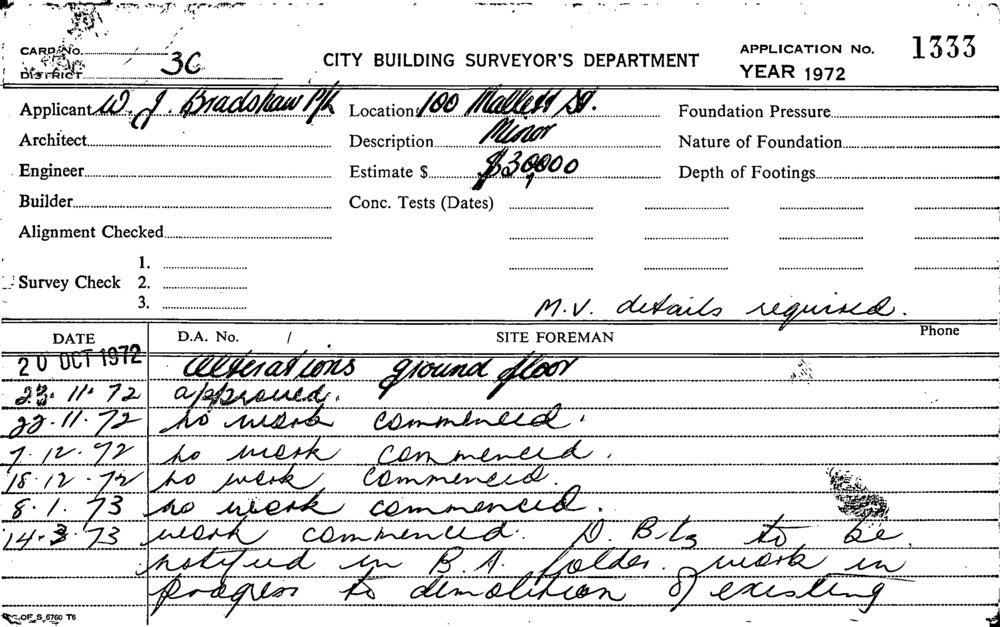 CARD No.
DISTRICT 3C
CITY BUILDING SURVEYOR'S DEPARTMENT
APPLICATION No. 1333
YEAR 1972
Applicant W. J. Bradshaw P/L
Location 100 Mallett St.
Foundation Pressure
Architect
Description Minor
Nature of Foundation
Engineer
Estimate $ $30,000
Depth of Footings
Builder
Conc. Tests (Dates)
Alignment Checked
Survey Check
1.
2.
3.
M.V. details required.
DATE
D.A. No. /
SITE FOREMAN
Phone
20 OCT 1972 Alterations ground floor
11. 72 approved.
22.11.72 no work commenced.
7.12.72 no work commenced.
18.12.72 no work commenced.
8.1.73 no work commenced.
14.3.73 work commenced. D. to be
notified in B.A. folder. work in
progress to demolition of existing
S 6760 T6